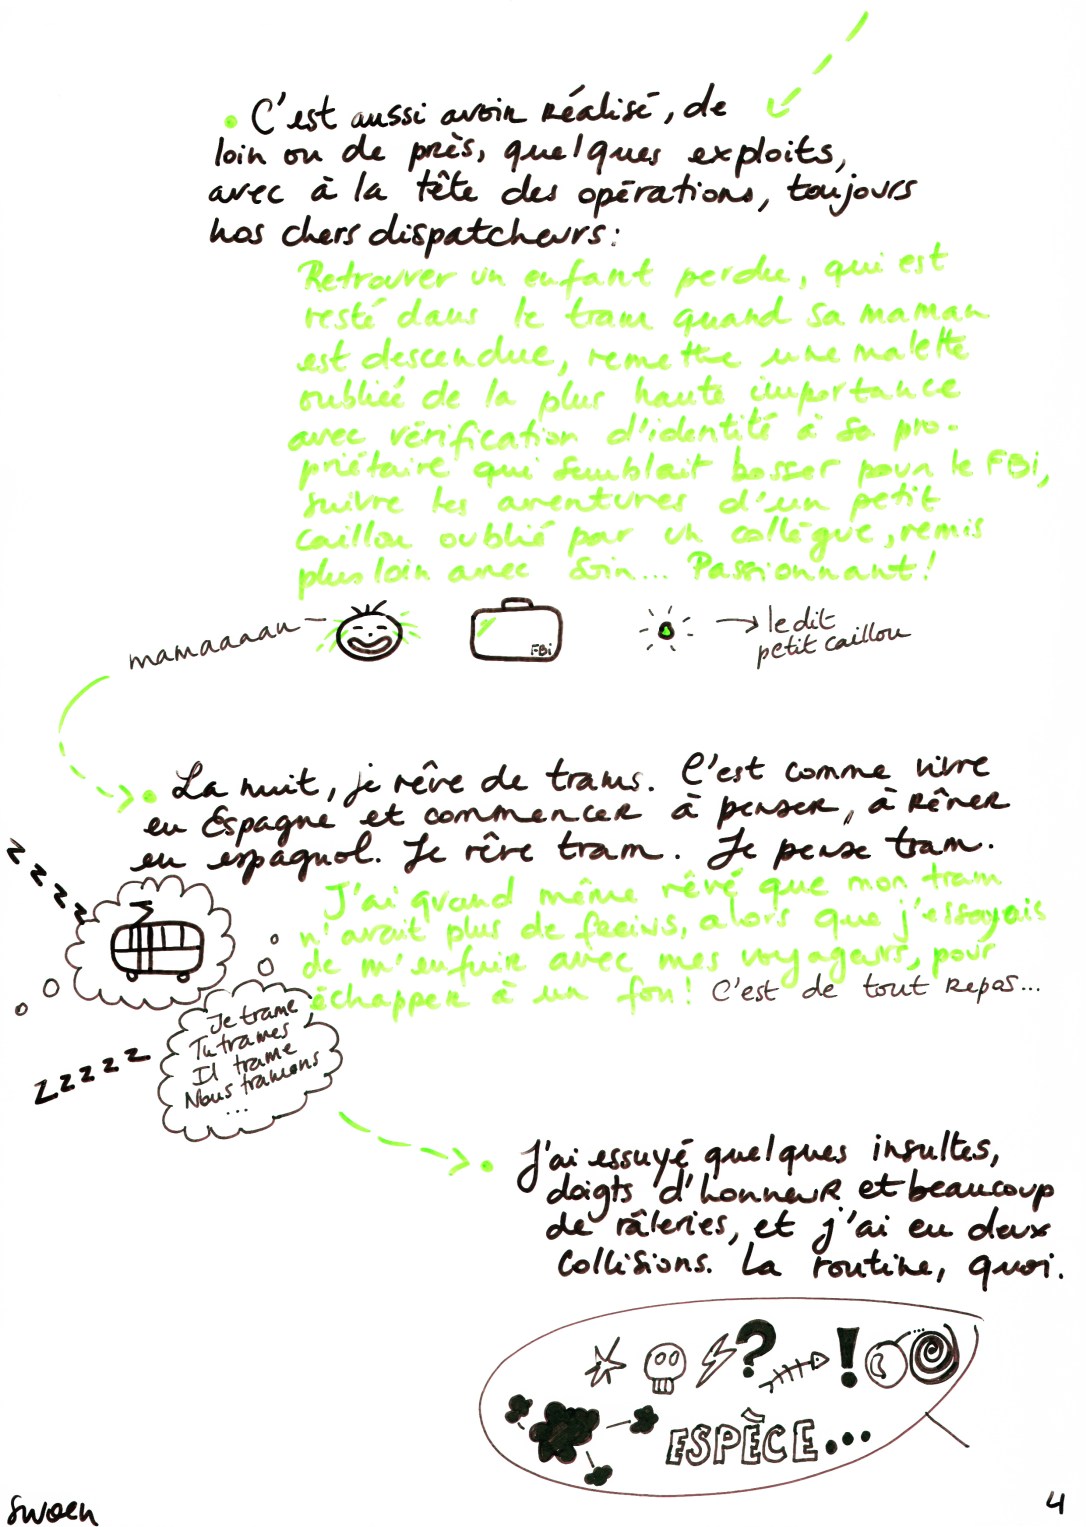 • C'est aussi avoir réalisé, de
loin ou de près, quelques exploits,
avec à la tête des opérations, toujours
nos chers dispatcheurs:
Retrouver un enfant perdu, qui est
resté dans le tram quand sa maman
est descendue, remettre une malette
oubliée de la plus haute importance
avec vérification d'identité à sa pro-
priétaire qui semblait bosser pour le FBi,
suivre les aventures d'un petit
caillou oublié par un collègue, remis
plus loin avec soin... Passionnant!
mamaaaan
FBi
le dit
petit caillou
• La nuit, je rêve de trams. C'est comme vivre
en Espagne et commencer à penser, à rêver
en espagnol. Je rêve tram. Je pense tram.
J'ai quand même rêvé que mon tram
n'avait plus de freins, alors que j'essayais
de m'enfuir avec mes voyageurs, pour
échapper à un fou! C'est de tout repos...
zzzzz
Je trame
Tu trames
Il trame
Nous tramons
...
zzzzz
• J'ai essuyé quelques insultes,
doigts d'honneur et beaucoup
de râleries, et j'ai eu deux
collisions. La routine, quoi.
?!
ESPÈCE...
Swoen
4